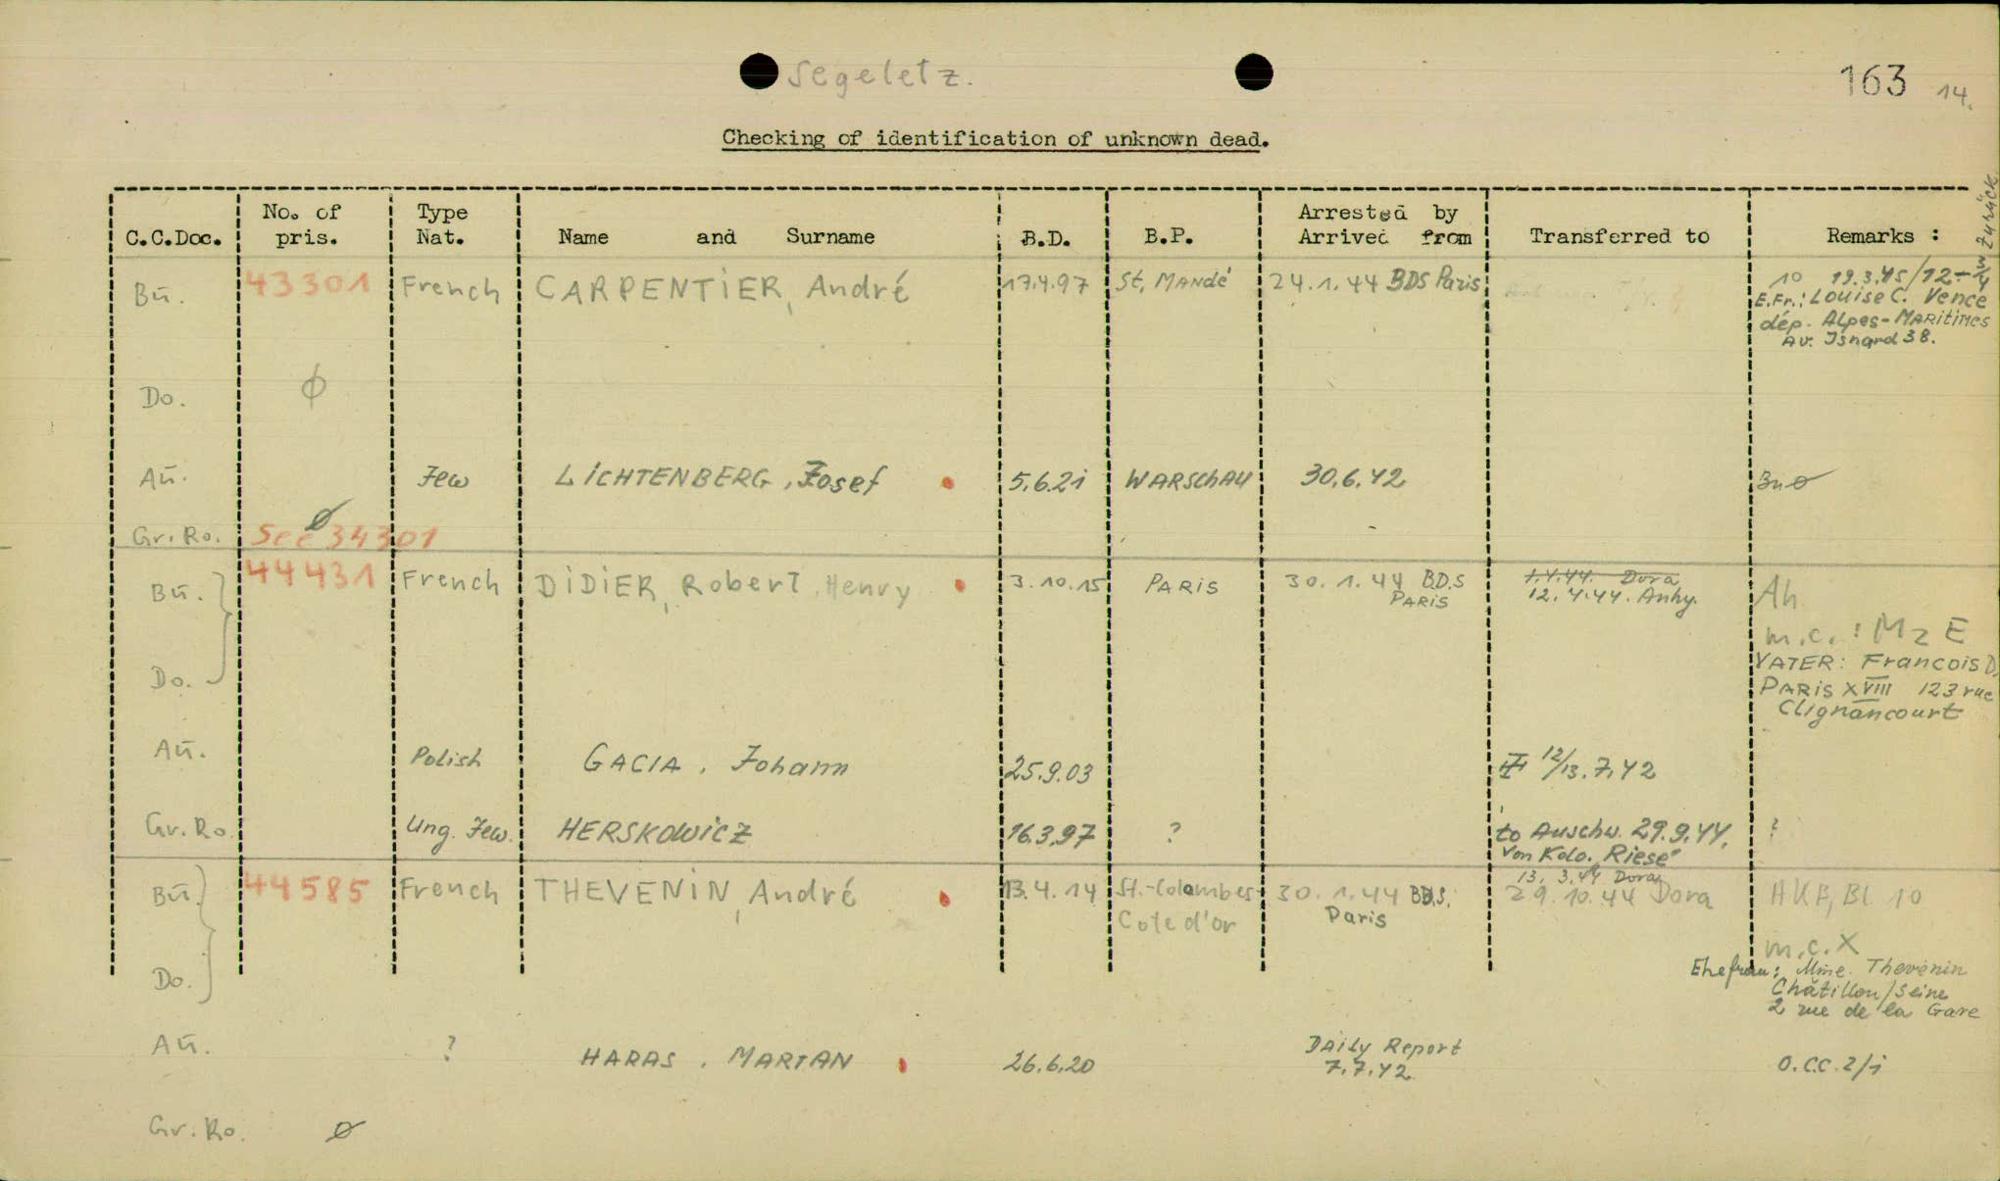 Segeletz.
163 14.
Checking of identification of unknown dead.
zurück
C.C.Doc. No. of pris. Type Nat. Name and Surname B.D. B.P. Arrested by Arrived from Transferred to Remarks :
Bū. 43301 French CARPENTIER, André 17.4.97 St. MANdé 24.1.44 BDS Paris
10 19.3.45/12-3/4
E.Fr.: Louise C. Vence
dép. Alpes-MARitiMes
Av. Isnard 38.
Do. ϕ
Aū. Jew LiCHTENBERG, Josef 5.6.21 WARSchAU 30.6.42 Bu ø
Gr. Ro. ø See 34301
Bū. 44431 French DiDiER, Robert, Henry 3.10.15 PARiS 30.1.44 BD.S PARiS
1.4.44. Dora
12.4.44. Anhy.
Ah
m.c. : M z E
Do.
VATER: Francois D.
PARiS XVIII 123 rue
Clignancourt
Aū. Polish GACIA, Johann 25.9.03 II 12/13.7.42
Gr. Ro. Ung. Jew. HERSKOWiCZ 16.3.97 ? to Auschw. 29.9.44. ?
von Kdo. "Riese"
13. 3.44 Dora
Bū. 44585 French THEVENiN, André 13.4.14 St.-Colombes Cote d'or 30.1.44 BD.S. Paris 29.10.44 Dora HKB, Bl 10
m.c. X
Do.
Ehefrau: Mme. Thevenin
Châtillon/Seine
2 rue de la Gare
Aū. ? HARAS, MARIAN 26.6.20 DAily Report 7.7.42 O.C.C. 2/1
Gr. Ro. ø